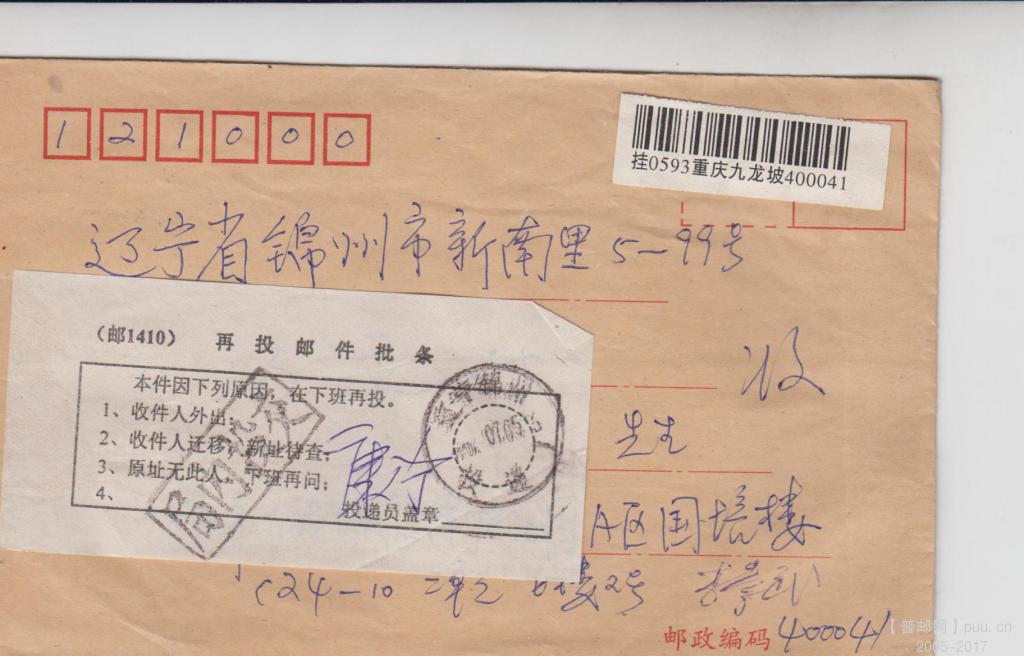 121000
挂0593重庆九龙坡400041
辽宁省锦州市新南里5-99号
收
(邮1410) 再投邮件批条
本件因下列原因，在下班再投。
1、收件人外出；
2、收件人迁移，新址待查；
3、原址无此人，下班再问；
4、
投递员盖章
先生
A区国培楼
C24-10
邮政编码 400041
【普邮网】puu.cn
2005-2017